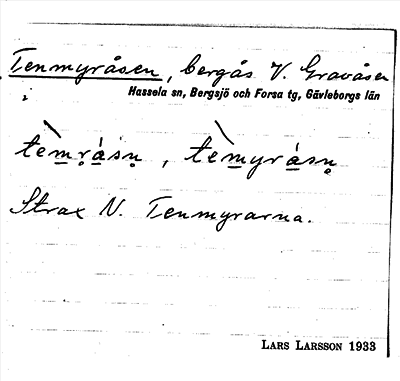 Tenmyråsen, bergås V. Gravåsen
i Hassela sn, Bergsjö och Forsa tg, Gävleborgs län
tèm̲ṛá̲sṇ, tèm̲yrá̲sṇ
Strax N. Tenmyrarna.
LARS LARSSON 1933